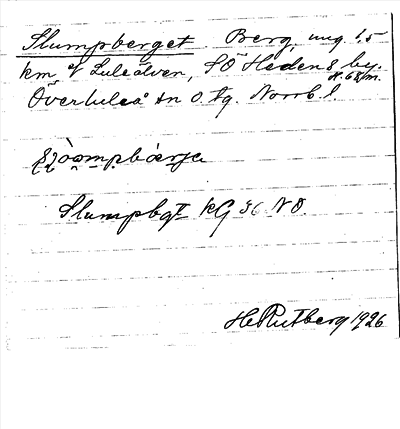 Slumpberget. Berg, ung. 1,5
km V Luleälven, SÖ Hedens by.
Överluleå sn N. 68/m.
Ö. tg. Norrb. l.
Slumpbgt KG 56 NO.
H. Rutberg 1926